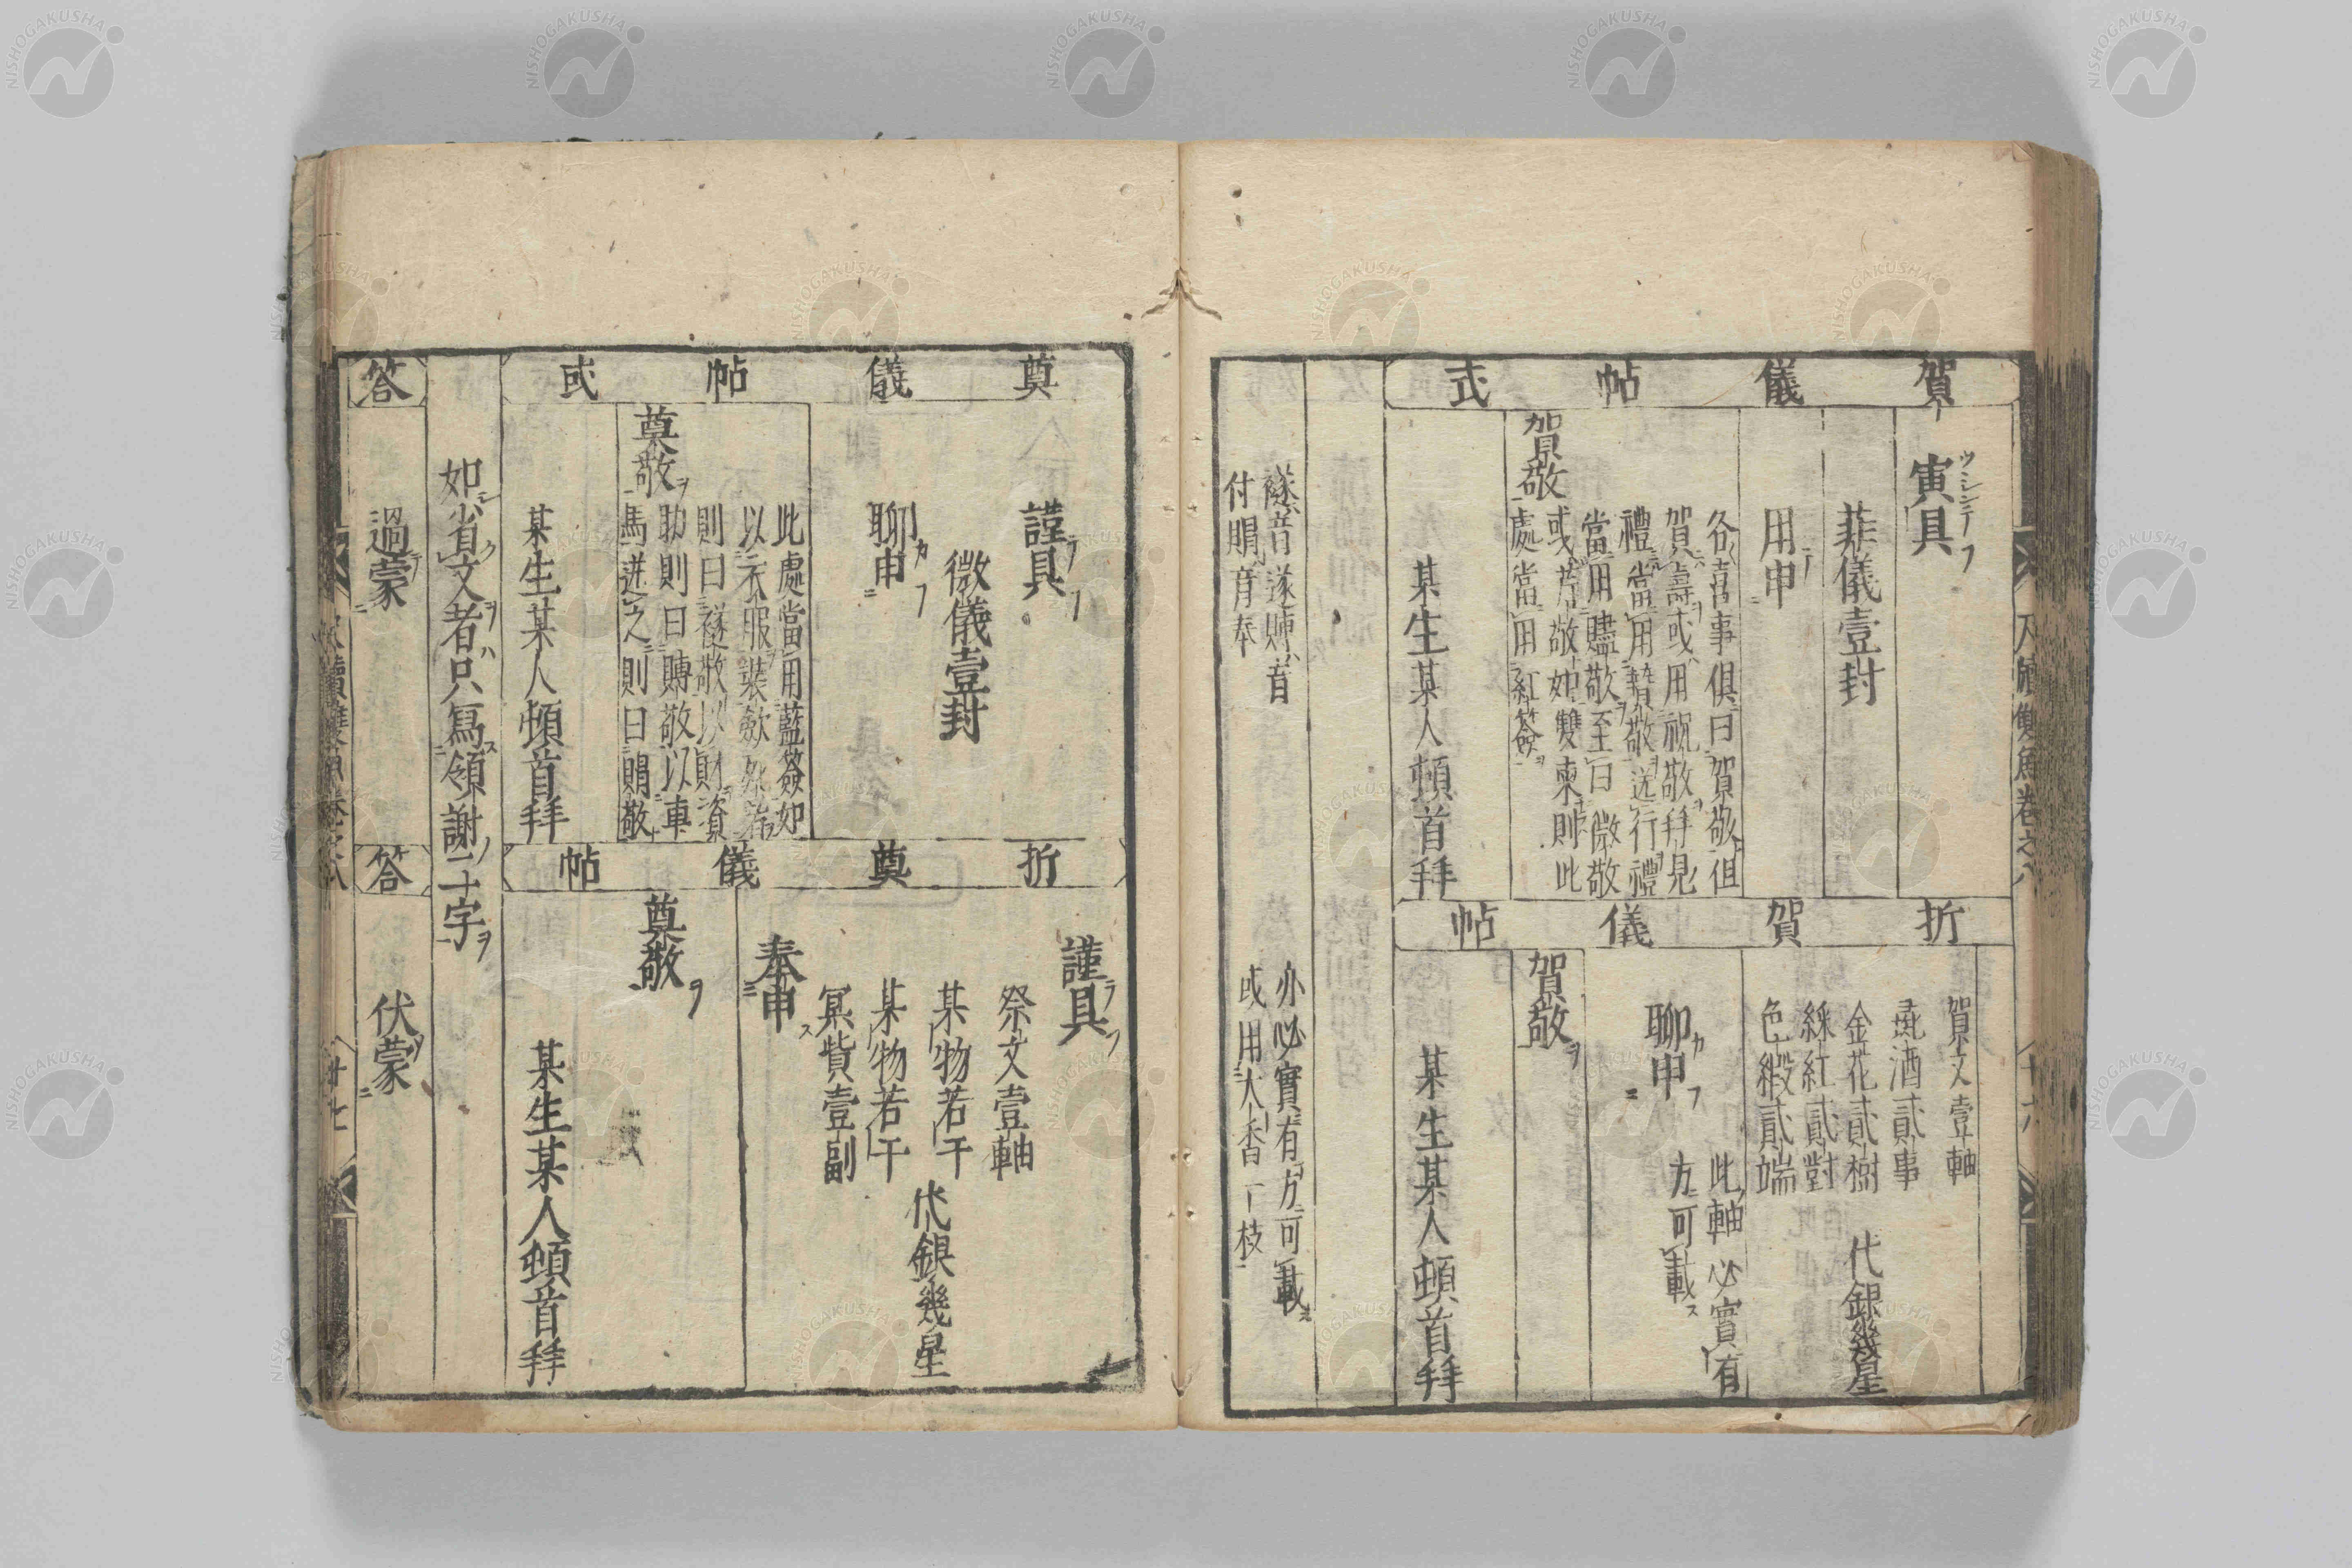 賀儀帖式
寅具
菲儀壹封
用申
賀敬
各喜事俱曰賀敬但
賀壽或用祝敬拜見
禮當用贄敬送行禮
當用贐敬至曰微敬
或芹敬如雙柬則此
處當用紅簽
某生某人頓首拜
折賀儀帖
賀文壹軸
羔酒貳事
金花貳樹
綵紅貳對
色緞貳端
代銀幾星
聊申
此軸必實有
方可載
賀敬
某生某人頓首拜
襚音遂賻音
付賵音奉
亦必實有方可載
或用大香一枝
奠儀帖式
謹具
微儀壹封
聊申
奠敬
此處當用藍簽如
以衣服裝斂
則曰襚敬以財資
助則曰賻敬以車
馬送之則曰賵敬
某生某人頓首拜
折奠儀帖
謹具
祭文壹軸
某物若干
某物若干
冥貲壹副
代銀幾星
奉申
奠敬
某生某人頓首拜
如省文者只寫領謝二字
答
過蒙
答
伏蒙
尺牘雙魚卷之八
十六
尺牘雙魚卷之八
十七
NISHOGAKUSHA